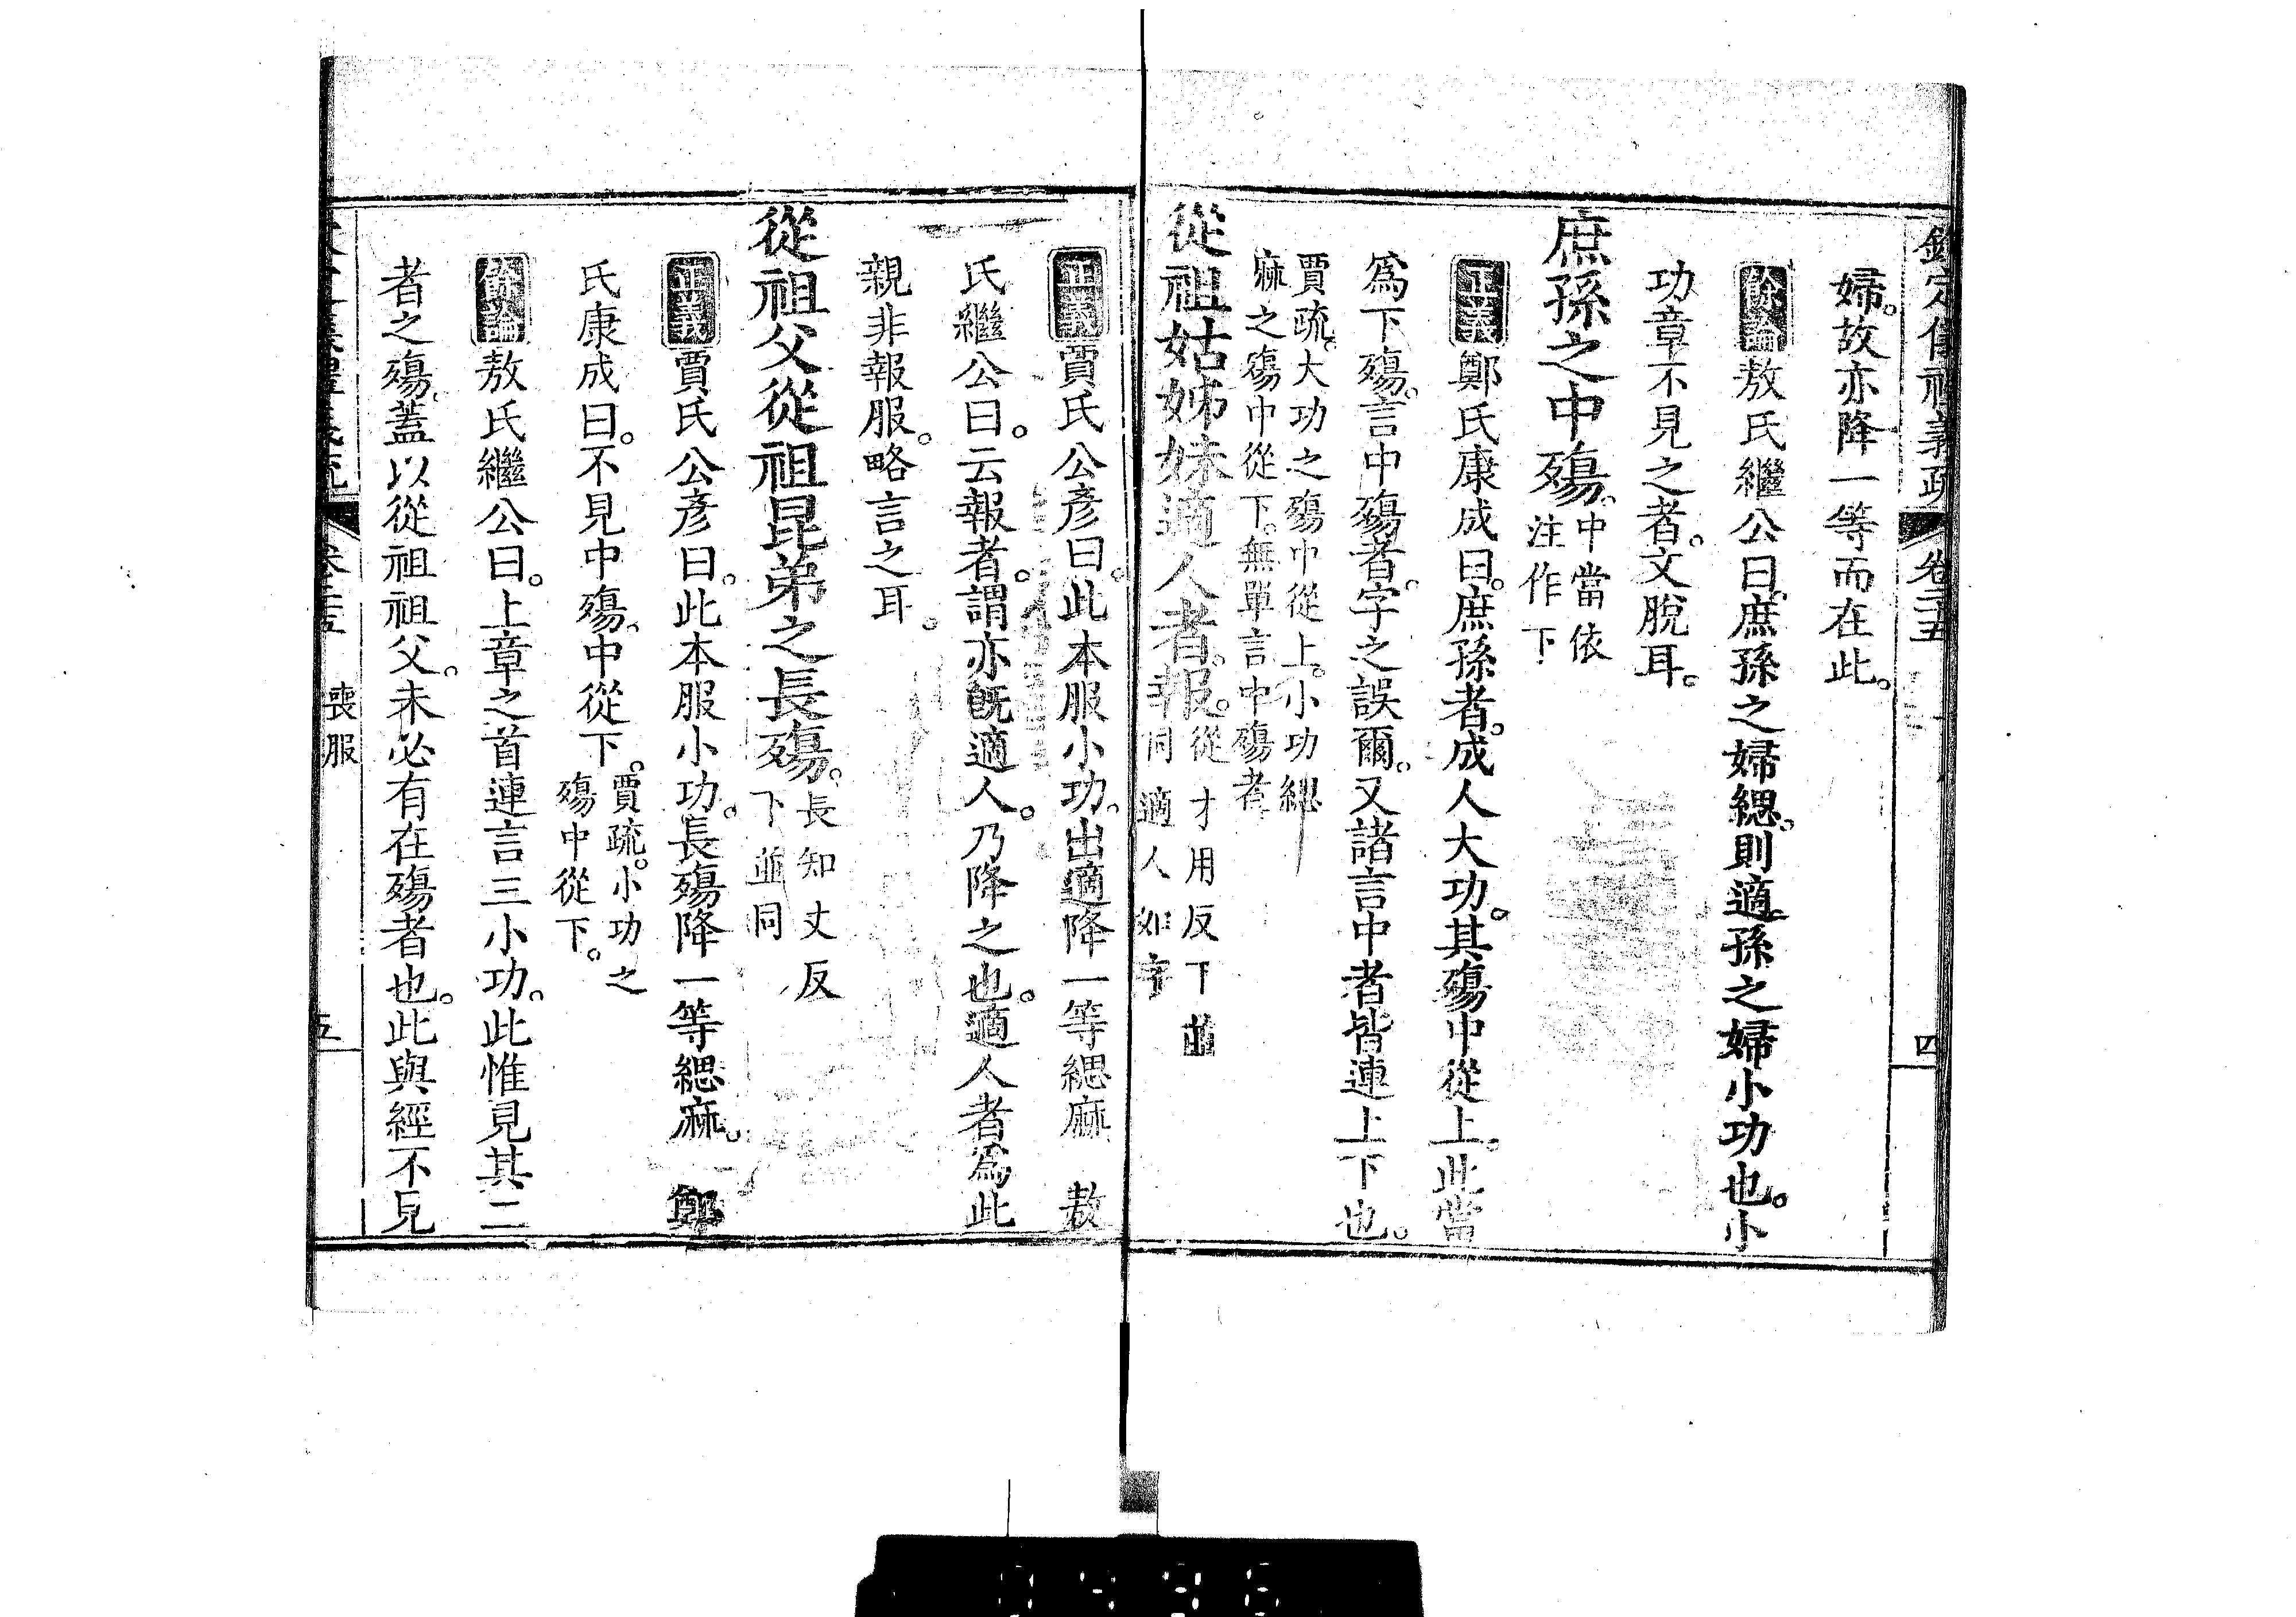 欽定儀禮義疏 卷二十五 四
婦。故亦降一等而在此。
餘論 敖氏繼公曰。庶孫之婦緦。則適孫之婦小功也。小
功章不見之者。文脫耳。
庶孫之中殤。中當依
注作下
正義 鄭氏康成曰。庶孫者。成人大功。其殤中從上。此當
爲下殤。言中殤者。字之誤爾。又諸言中者皆連上下也。
賈疏。大功之殤中從上。小功緦
麻之殤中從下。無單言中殤者
從祖姑姊妹適人者。報。從才用反下並
同適人如字
正義 賈氏公彥曰。此本服小功。出適降一等緦麻 敖
氏繼公曰。云報者。謂亦既適人。乃降之也。適人者爲此
親非報服。略言之耳。
從祖父從祖昆弟之長殤。長知丈反
下並同
正義 賈氏公彥曰。此本服小功。長殤降一等緦麻。 鄭
氏康成曰。不見中殤。中從下。賈疏。小功之
殤中從下。
餘論 敖氏繼公曰。上章之首連言三小功。此惟見其二
者之殤。蓋以從祖祖父。未必有在殤者也。此與經不見
喪服 五